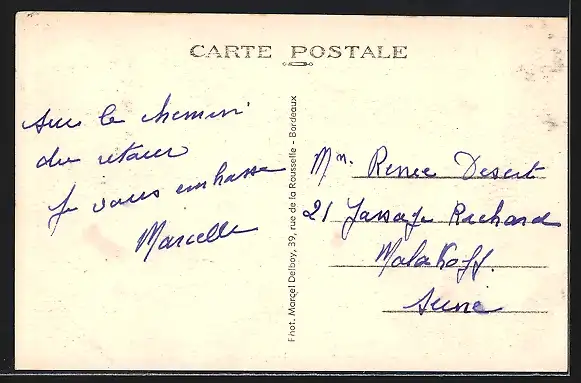 CARTE POSTALE
Sur le chemin
du retour
Je vous embrasse
Marcelle
Phot. Marcel Delboy, 39, rue de la Rousselle - Bordeaux
Mn. Renee Desert
21 Passage Richard
Malakoff.
Seine